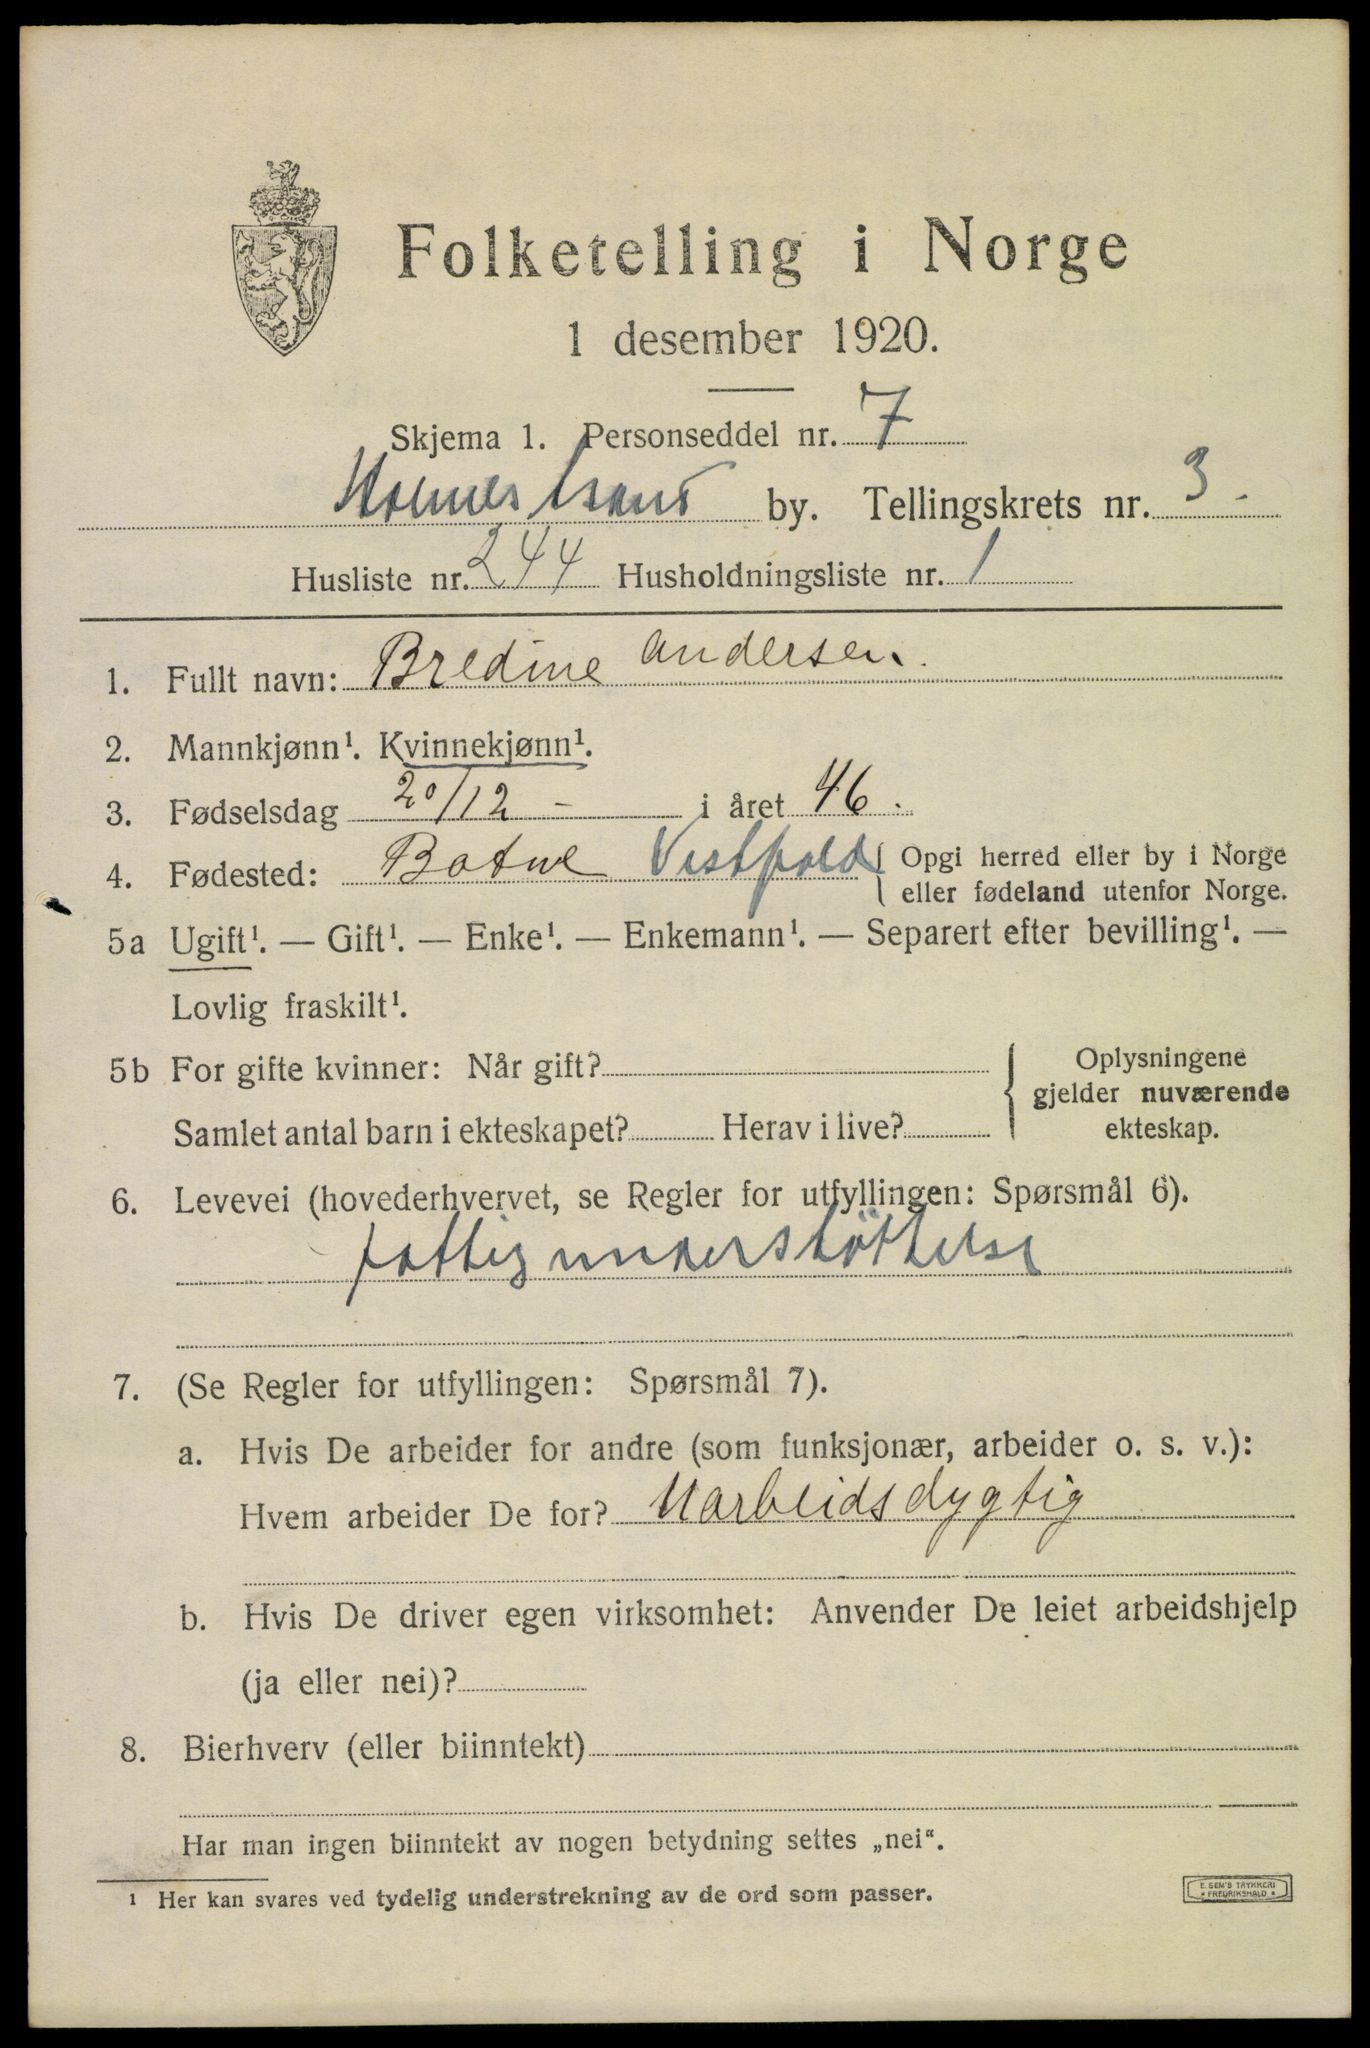 Folketelling i Norge
1 desember 1920.
Skjema 1. Personseddel nr. 7
Holmestrand by. Tellingskrets nr. 3.
Husliste nr. 244 Husholdningsliste nr. 1
1. Fullt navn: Bredine Andersen.
2. Mannkjønn¹. Kvinnekjønn¹.
3. Fødselsdag 20/12 - i året 46.
4. Fødested: Botne Vestfold { Opgi herred eller by i Norge
eller fødeland utenfor Norge.
5a Ugift¹. — Gift¹. — Enke¹. — Enkemann¹. — Separert efter bevilling¹. —
Lovlig fraskilt¹.
5b For gifte kvinner: Når gift? { Oplysningene
gjelder nuværende
Samlet antal barn i ekteskapet? Herav i live? ekteskap.
6. Levevei (hovederhvervet, se Regler for utfyllingen: Spørsmål 6).
fattigunderstöttelse
7. (Se Regler for utfyllingen: Spørsmål 7).
a. Hvis De arbeider for andre (som funksjonær, arbeider o. s. v.):
Hvem arbeider De for? Uarbeidsdygtig
b. Hvis De driver egen virksomhet: Anvender De leiet arbeidshjelp
(ja eller nei)?
8. Bierhverv (eller biinntekt)
Har man ingen biinntekt av nogen betydning settes „nei“.
¹ Her kan svares ved tydelig understrekning av de ord som passer.
E. SEM'S TRYKKERI
* FREDRIKSHALD *